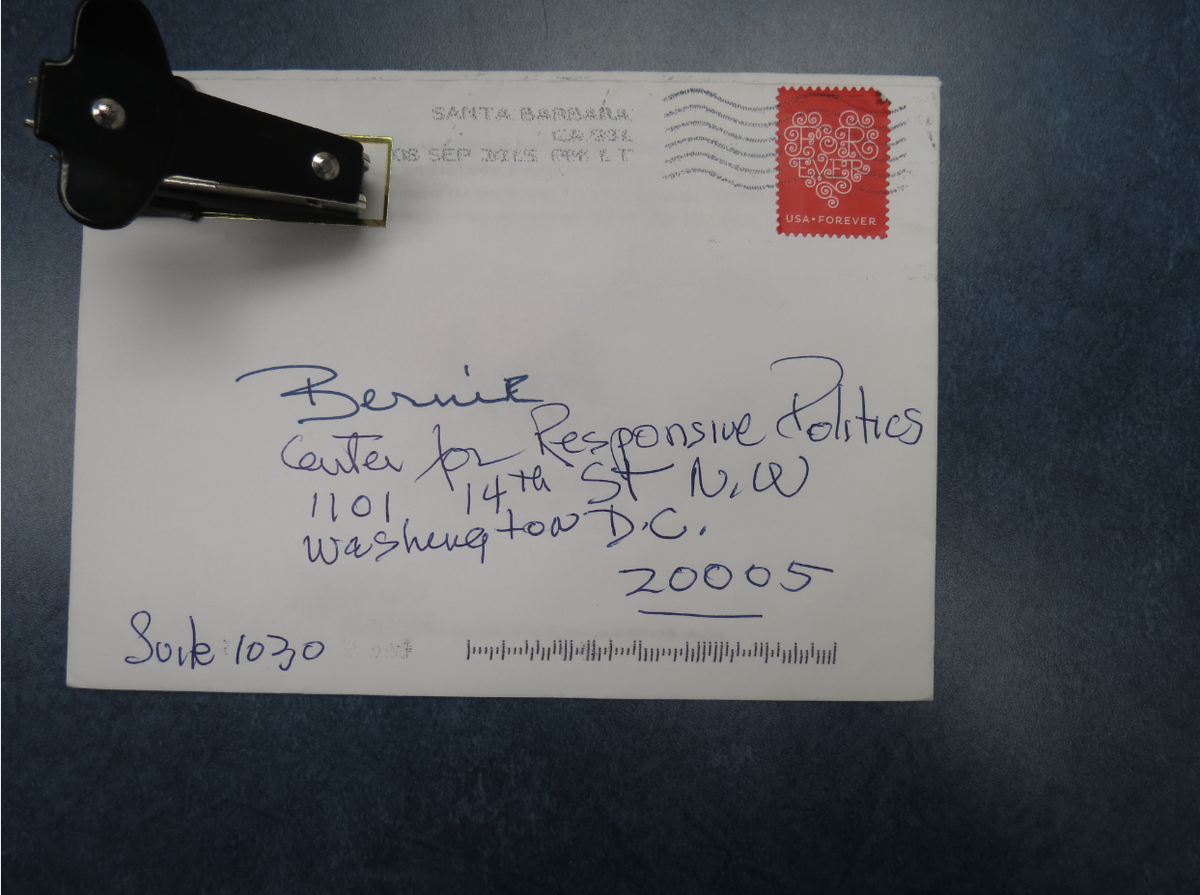 SANTA BARBARA
CA 931
08 SEP 2015 PM
FOR
EVER
USA • FOREVER
Bernie
Center for Responsive Politics
1101 14th St N.W
Washington D.C.
20005
Suite 1030